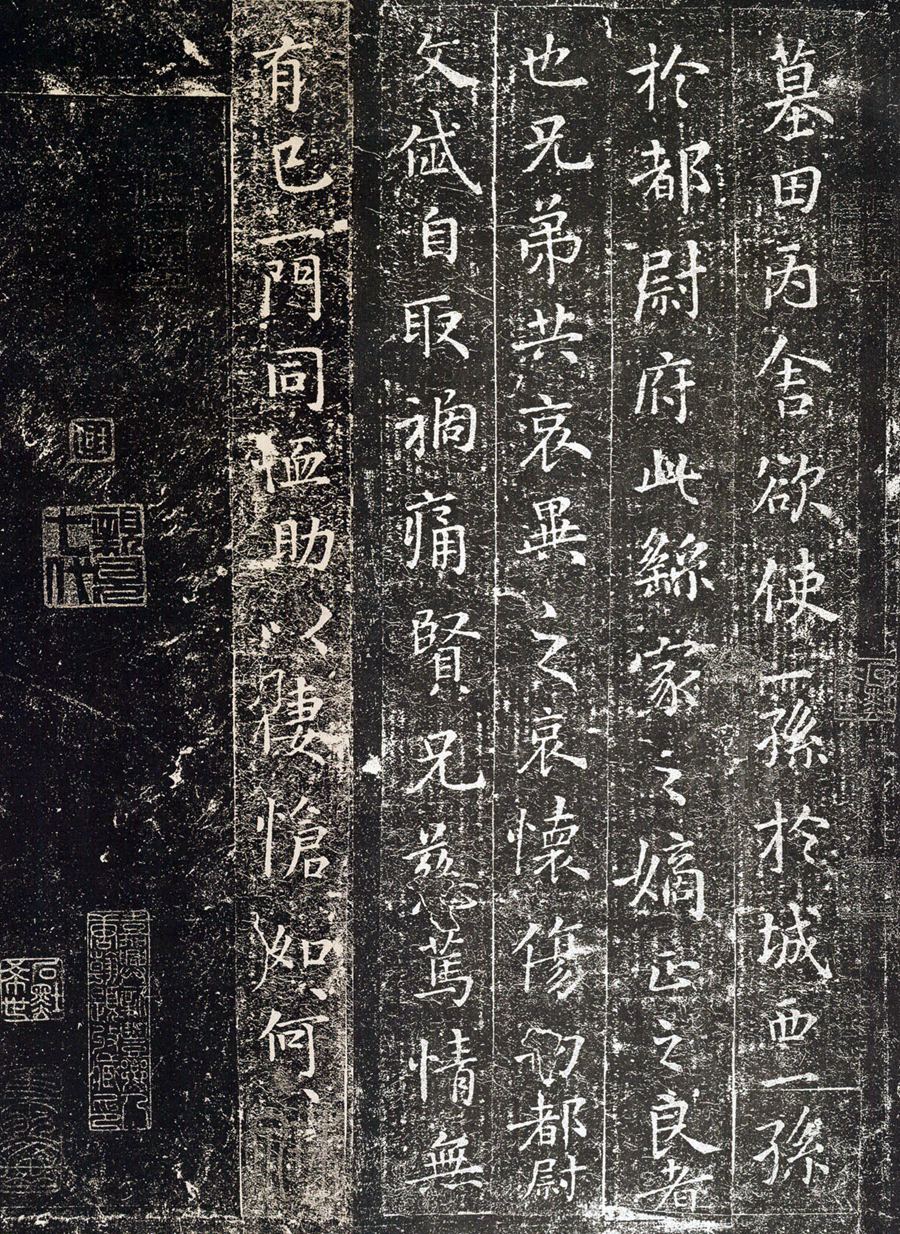 墓田丙舍欲使一孫於城西一孫
於都尉府此繇家之嫡正之良者
也兄弟共哀異之哀懷傷切都尉
文岱自取禍痛賢兄慈篤情無
有已一門同恤助以悽愴如、何、